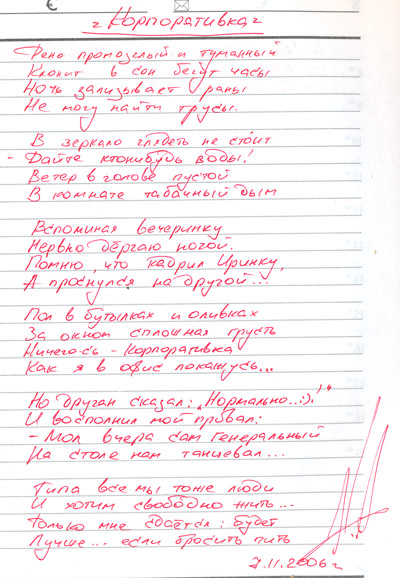 "Корпоративка"
Фено промозглый и туманный
Клонит в сон бегут часы
Ночь зализывает раны
Не могу найти трусы.
В зеркало глядеть не стоит
- Дайте ктонибудь воды!
Ветер в голове пустой
В комнате табачный дым
Вспоминая вечеринку
Нервно дёргаю ногой.
Помню, что кадрил Иринку,
А проснулся на другой...
Пол в бутылках и оливках
За окном сплошная грусть
Ничего-сь - Корпоративка
Как я в офис покажусь...
Но друган сказал: „Нормально..:).'"
И восполнил мой провал:
- Мол вчера сам генеральный
На столе нам танцевал...
Типа все мы тоже люди
И хотим свободно жить...
Только мне сдаётся: будет
Лучше... если бросить пить
2.11.2006 г